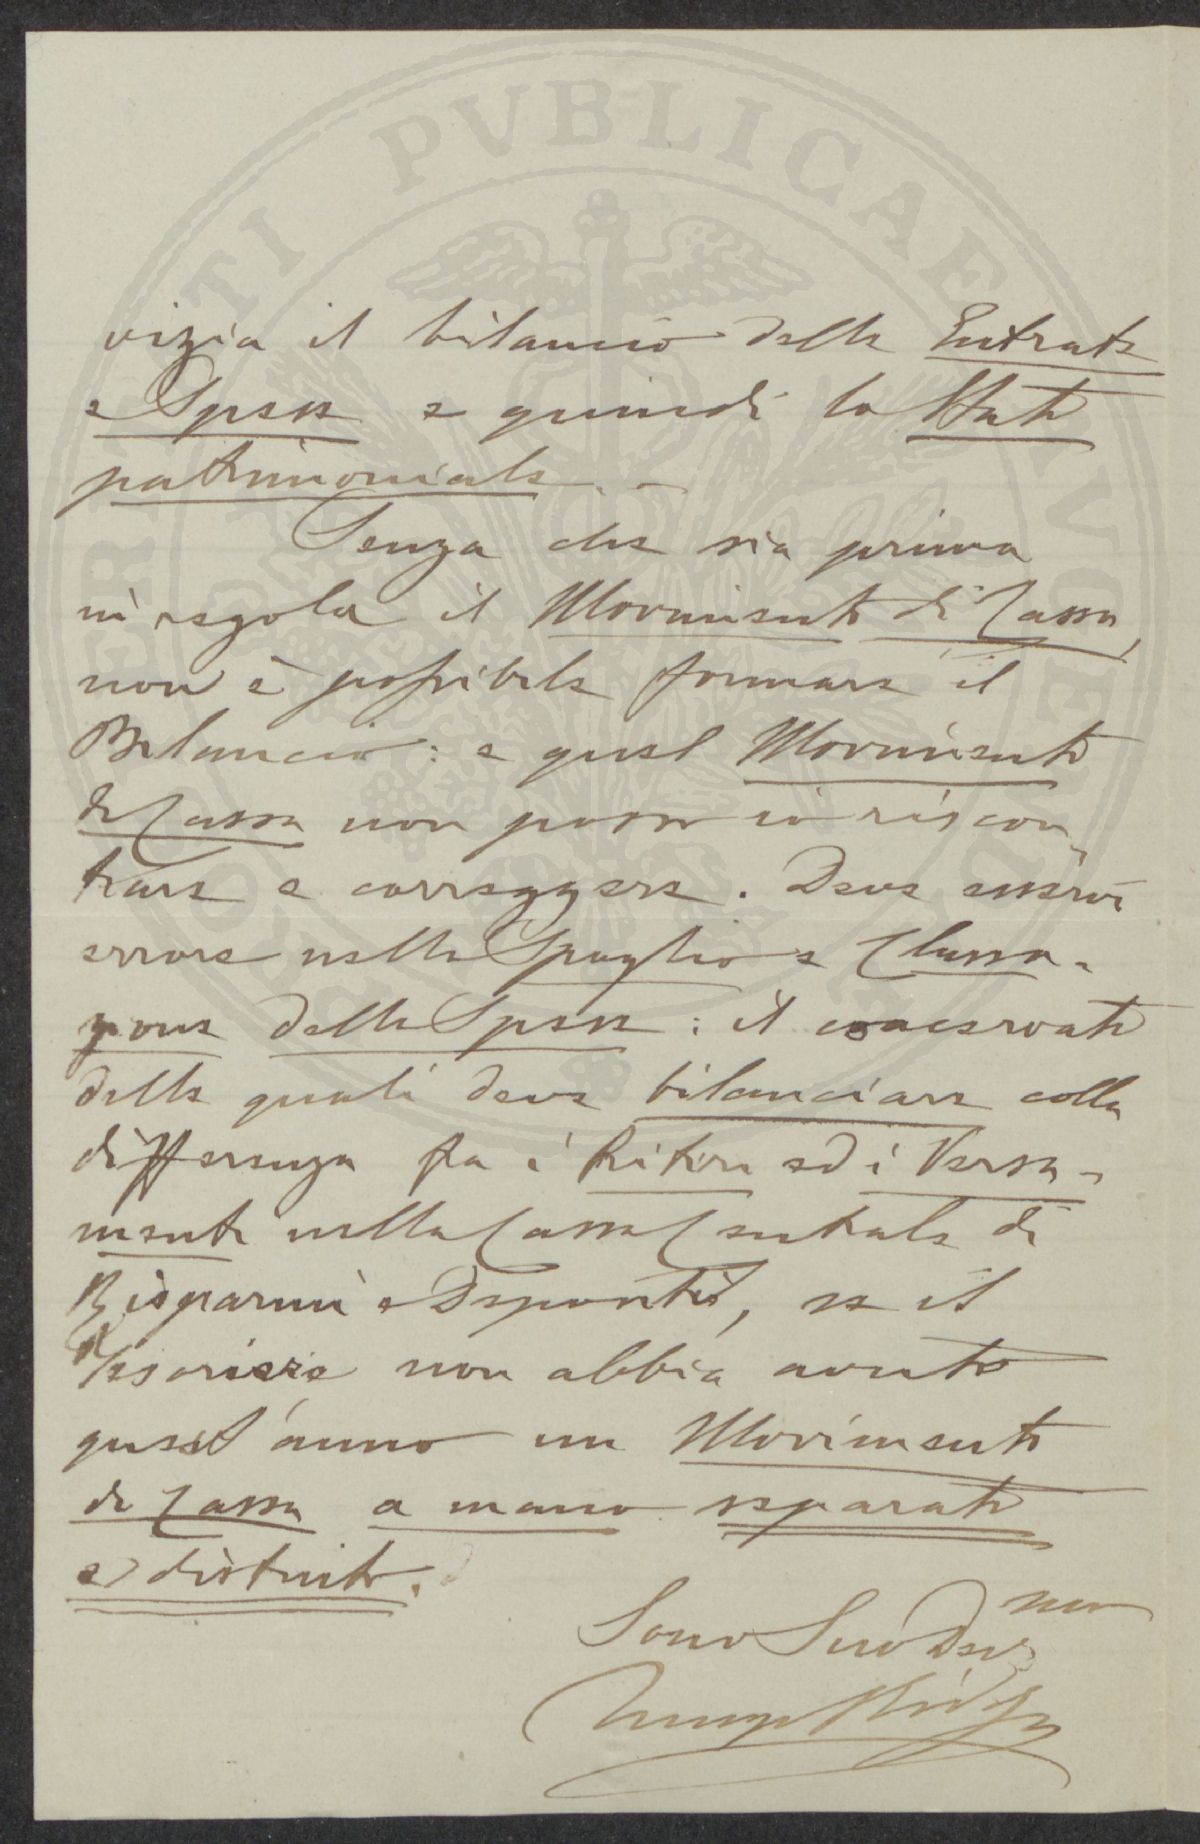 PROSPERITATI PVBLICAE AVGENDAE
vizia il bilancio delle Entrate
e Spese e quindi lo Stato
patrimoniale. –
Senza che sia prima
in regola il Movimento di Cassa,
non è possibile formare il
Bilancio: e quel Movimento
di Cassa non posso io riscon-
trare e correggere. Deve esservi
errore nello Spoglio e Classa-
zione delle Spese: il coacervato
delle quali deve bilanciare colla
differenza fra i Ritiri ed i Versa-
menti nella Cassa Centrale di
Risparmi e Depositi, se il
Tesoriere non abbia avuto
quest'anno un Movimento
di Cassa a mano separato
e distinto.
Sono Suo Dev mo